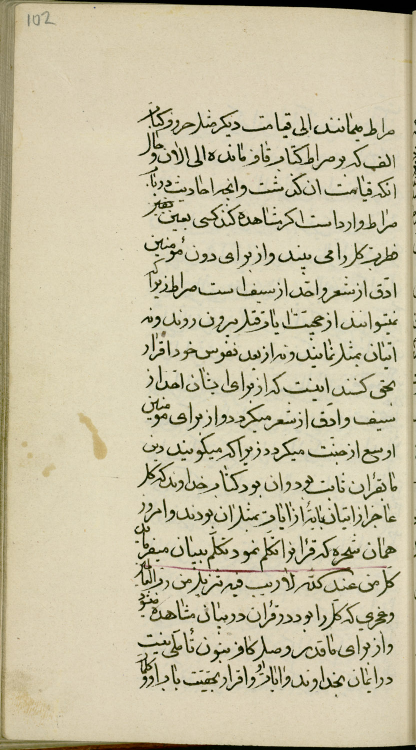 102
صراط میمانند الی قیامت دیگر مثل حروف کتاب
الف که بر صراط کتاب قاف مانده الی الان و حال
آنکه قیامت آن گذشت و آنچه احادیث در باب
صراط وارد است اگر مشاهده کند کسی بعین
ظهورات کل را می بیند و از برای دون مؤمنین
ادق از شعر و احد از سیف است صراط زیرا که
نمیتوانند از حجیت ایات قبل بیرون روند و نه
اتیان بمثل نمایند و نه از بعد نفوس خود اقرار
بحق کنند اینست که از برای ایشان احد از
سیف و ادق از شعر میگردد و از برای مؤمنین
اوسع از جنت میگردد زیرا که میگویند دین
ما بقران ثابت بود و ان بود کتاب خداوند که کل
عاجز از اتیان بایهٔ از ایات بمثل ان بودند و امروز
همان شجره که قران را تکلم نمود تکلم ببیان میفرماید
کل من عند الله لا ریب فیه تنزیل من رب العالمین
و عجزی که کل را بود در قران در بیان مشاهده میشود
و از برای ما قدر وصل کاف بنون تاملی نیست
در ایمان بخداوند و ایات او و اقرار بحقیت باب او و